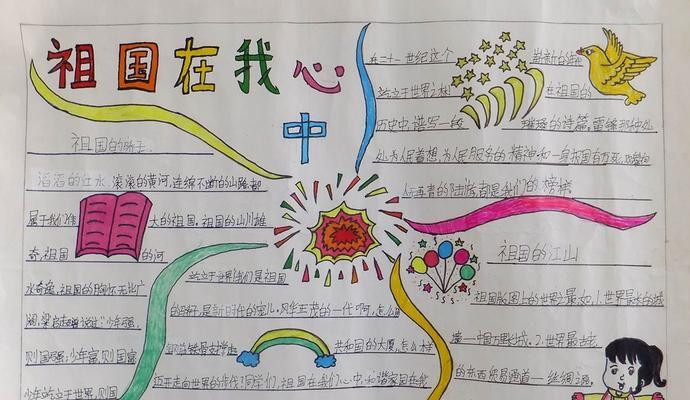 祖国在我心
中
祖国的骄子
滔滔的江水,滚滚的黄河,连绵不断的山路,都
属于我们伟
大的祖国,祖国的山川雄
奇,祖国
的河
水奇逸,祖国的胸怀无比广
阔,梁启超说过"少年强,
则国强,少年富,则国富
少年站立于世界,则国
站立于世界,我们是祖国
的骄子,是新时代的宠儿,风华正茂的一代啊,怎么
共和国的大厦,怎么才
迈开走向世界的步伐?同学们,祖国在我们心中,和谐家园在我
在二十一世纪这个
崭新的
站立于世界之林
在祖国的
历史中,谱写一段
璀璨的诗篇,雷锋那种处
处为人民着想,为人民服务的精神和
的陆游,都是我们的榜样
祖国的江山
祖国版图上的世界之最如,1.世界最长的城
墙——中国万里长城。2.世界最古老
的东西贸易通道——丝绸之路。